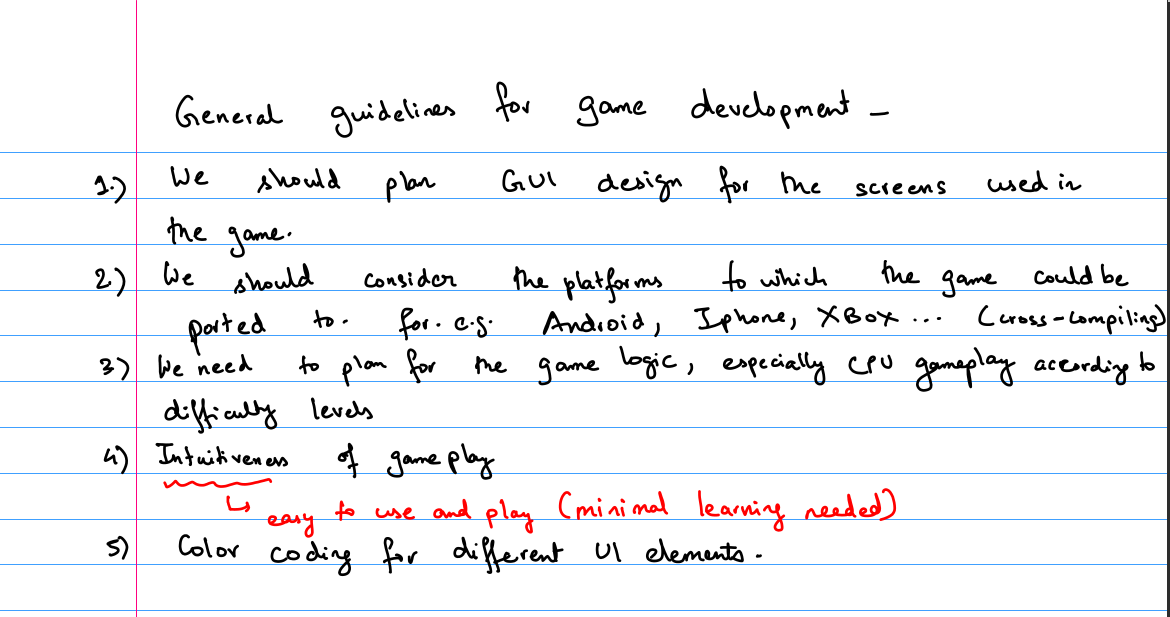 General guidelines for game development -
1.) We should plan GUI design for the screens used in
the game.
2) We should consider the platforms to which the game could be
ported to. for. e.g. Android, Iphone, XBOX ... (cross-compiling)
3) We need to plan for the game logic, especially CPU gameplay according to
difficulty levels
4) Intuitiveness of gameplay
↳ easy to use and play (minimal learning needed)
5) Color coding for different UI elements.